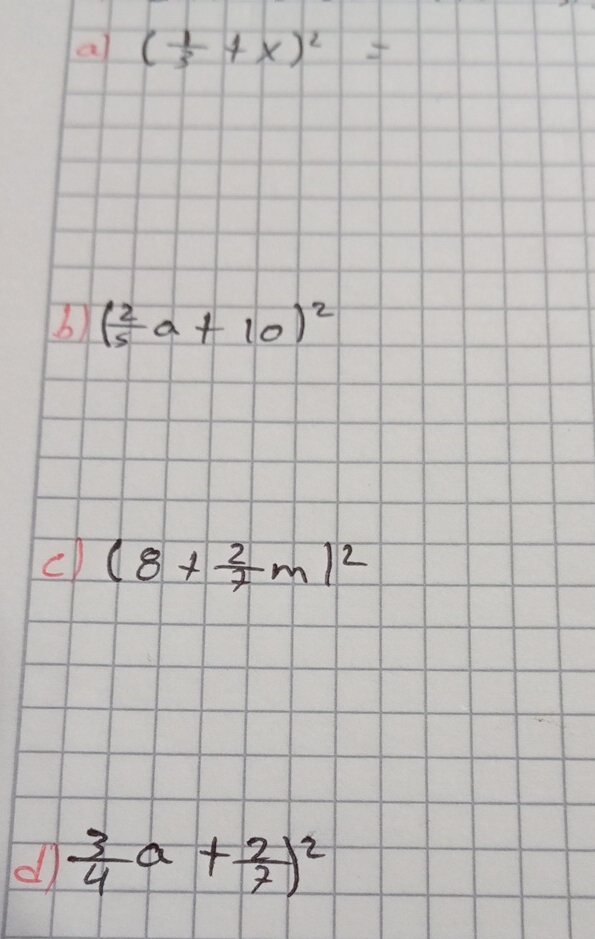 a) (1/3 + x)² =
b) (2/5 a + 10)²
c) (8 + 2/7 m)²
d) 3/4 a + 2/7)²